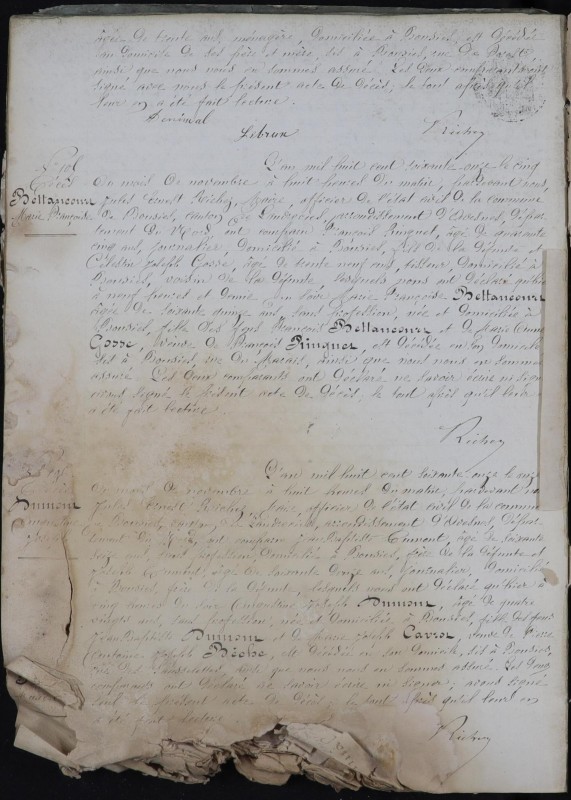 âgée de trente ans, ménagère, domiciliée à Bousies, est décédée
au domicile de ses père et mère, sis à Bousies, rue de
ainsi que nous nous en sommes assuré. Les deux comparants ont
signé avec nous le présent acte de décès, le tout après qu'il
leur en a été fait lecture.
Lebrun
Richez
L'an mil huit cent soixante onze le cinq
Décès
du mois de novembre à huit heures du matin, pardevant nous,
Bettancourt
Jules Ernest Richez, Maire, officier de l'état civil de la commune
Marie Françoise
de Bousies, canton de Landrecies, arrondissement d'Avesnes, dépar-
tement du Nord, ont comparu François Ringuet, âgé de quarante
cinq ans, journalier domicilié à Bousies, fils de la défunte et
Célestin Joseph Gosse, âgé de trente neuf ans, tisseur domicilié à
Bousies, voisin de la défunte, lesquels nous ont déclaré qu'hier
à neuf heures et demie du soir Marie Françoise Bettancourt
âgée de soixante ans, sans profession, née et domiciliée à
Bousies, fille des feus François Bettancourt et de Marie Anne
Gosse, veuve de François Ringuet, est décédée en son domicile
sis à Bousies, rue du Marais, ainsi que nous nous en sommes
assuré. Les deux comparants ont déclaré ne savoir écrire ni signer
avons signé le présent acte de décès, le tout après qu'il leur en
a été fait lecture.
Richez
L'an mil huit cent soixante onze le
de novembre à huit heures du matin, pardevant nous
Dumont
Jules Ernest Richez, Maire, officier de l'état civil de la commune
de Bousies, canton de Landrecies, arrondissement d'Avesnes, départ-
tement du Nord, ont comparu Jean Baptiste Dumont, âgé de soixante
seize ans, sans profession domicilié à Bousies, frère de la défunte et
Joseph Dumont, âgé de soixante douze ans, journalier, domicilié
à Bousies, frère de la défunte, lesquels nous ont déclaré qu'hier à
cinq heures du soir Joseph Dumont, âgée de quatre
vingts ans sans profession, née et domiciliée à Bousies, fille des feus
Jean Baptiste Dumont et de Marie Joseph Carrot, veuve de Pierre
Joseph Bêche, est décédée en son domicile, sis à Bousies,
rue des ainsi que nous nous en sommes assuré. Les deux
comparants ont déclaré ne savoir écrire ni signer, avons signé
seul le présent acte de décès, le tout après qu'il leur en
a été fait lecture
Richez